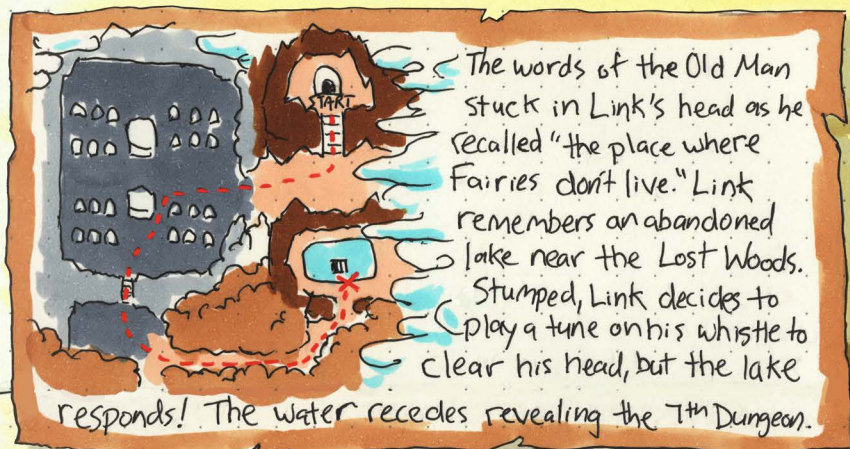 START
The words of the Old Man
stuck in Link's head as he
recalled "the place where
Fairies don't live." Link
remembers an abandoned
lake near the Lost Woods.
Stumped, Link decides to
play a tune on his whistle to
clear his head, but the lake
responds! The water recedes revealing the 7th Dungeon.